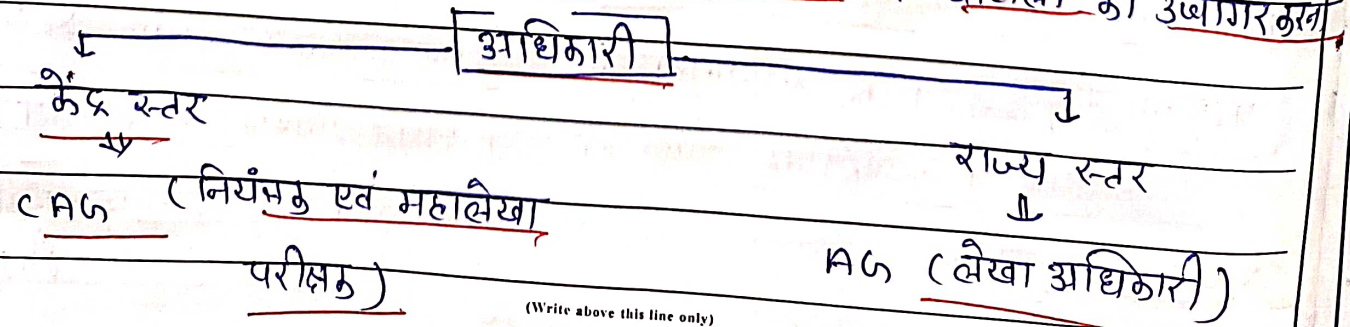 को उजागर करना
अधिकारी
केंद्र स्तर
राज्य स्तर
CAG (नियंत्रक एवं महालेखा
परीक्षक)
AG (लेखा अधिकारी)
(Write above this line only)